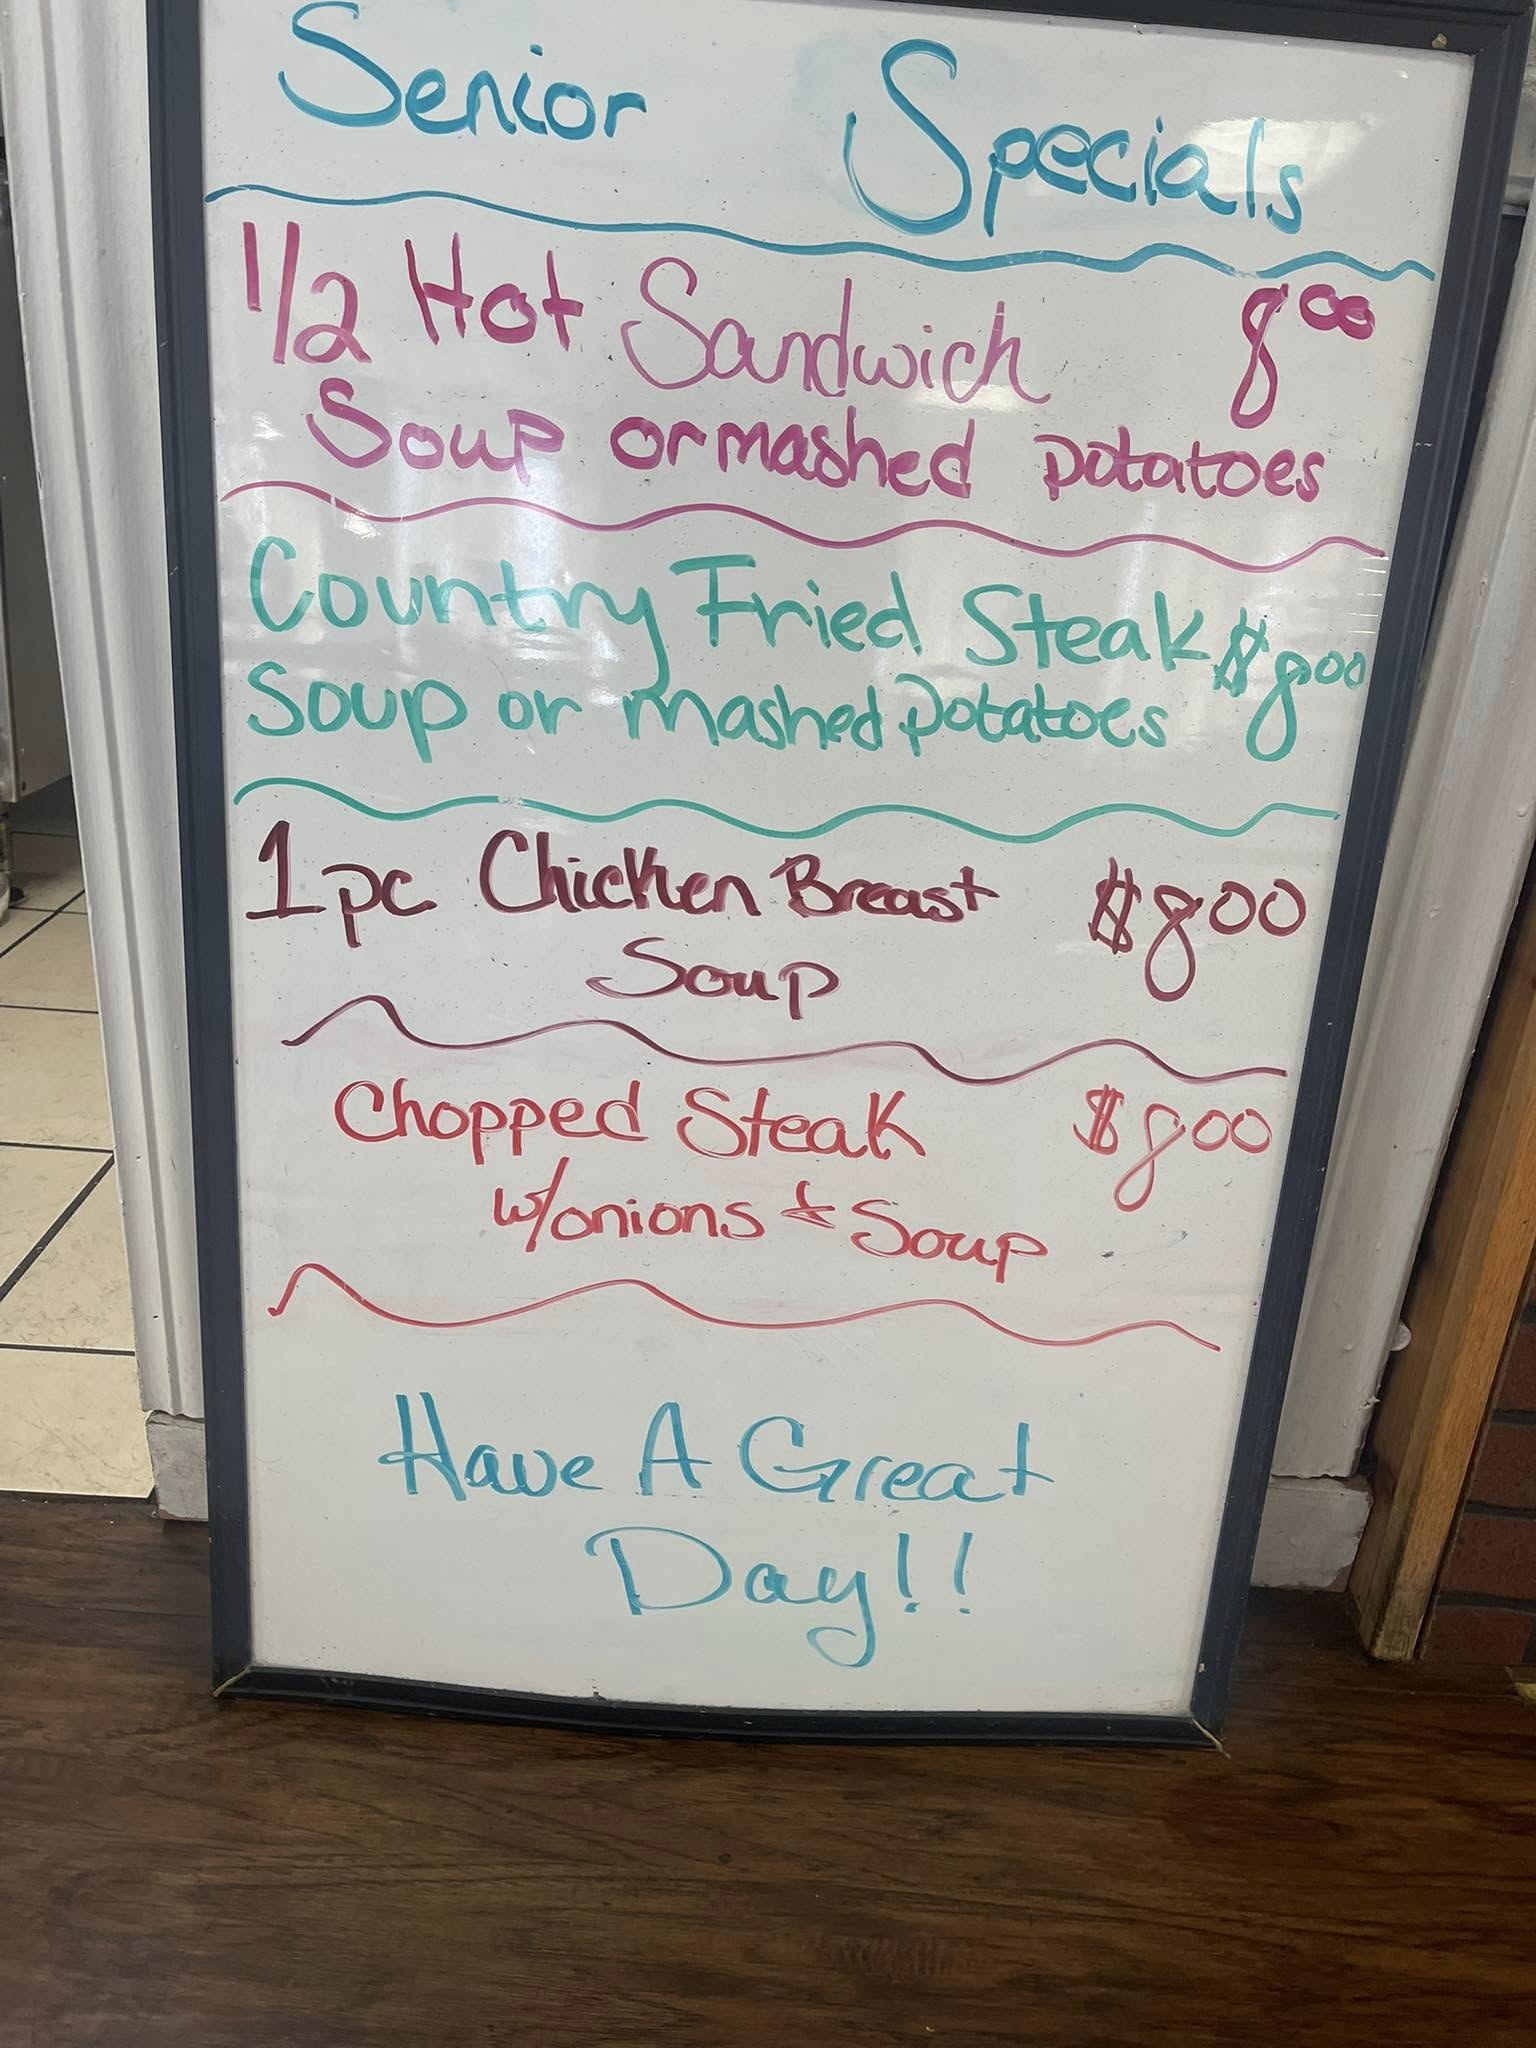 Senior Specials
1/2 Hot Sandwich 800
Soup or mashed potatoes
Country Fried Steak $8.00
Soup or mashed potatoes
1 pc Chicken Breast $800
Soup
Chopped Steak $800
w/onions & Soup
Have A Great
Day!!